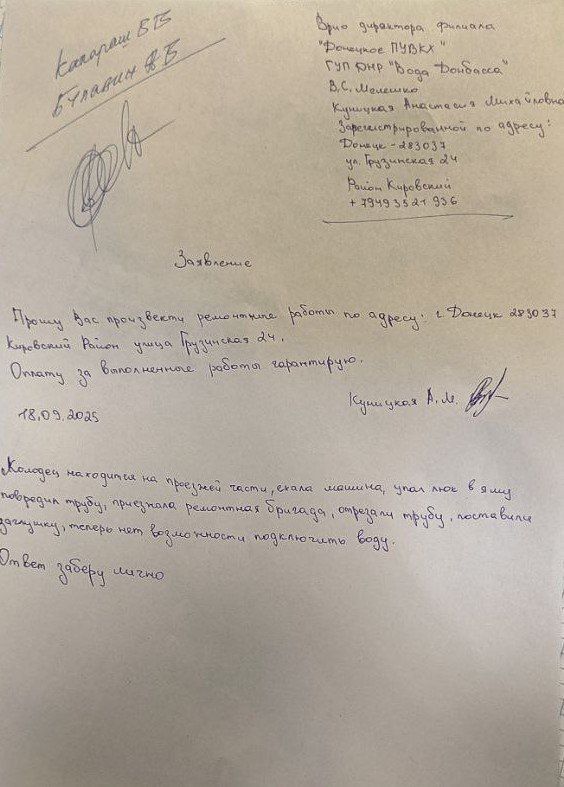 Капараш В В
Булавин А Б
Врио директора филиала
"Донецкое ПУВКХ"
ГУП ДНР "Вода Донбасса"
В.С. Мелешко
Куницкая Анастасия Михайловна
Зарегистрированной по адресу:
Донецк - 283037
ул. Грузинская 24
Район Кировский
+ 7949 3521 936
Заявление
Прошу Вас произвекти ремонтные работы по адресу: г. Донецк 283037
Кировский Район улица Грузинская 24.
Оплату за выполненные работы гарантирую.
Куницкая А.М.
18.09.2025
Колодец находится на проезжей части, ехала машина, упал люк в яму
повредил трубу, приезжала ремонтная бригада, отрезали трубу, поставили
заглушку, теперь нет возможности подключить воду.
Ответ заберу лично